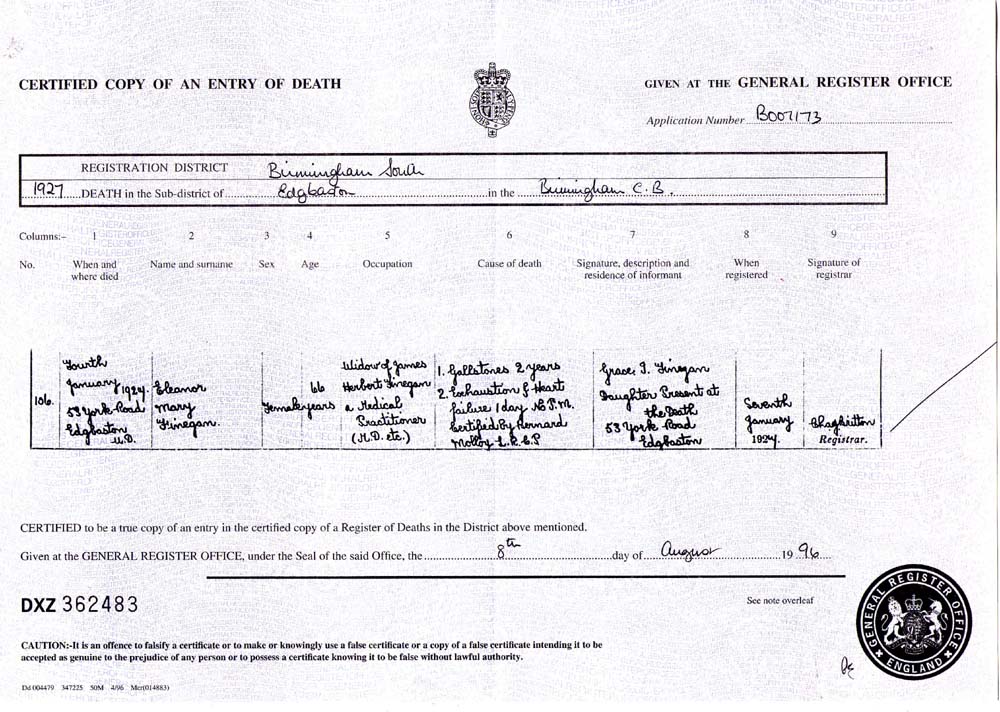 CERTIFIED COPY OF AN ENTRY OF DEATH
GIVEN AT THE GENERAL REGISTER OFFICE
Application Number B007173
REGISTRATION DISTRICT Birmingham South
1927 DEATH in the Sub-district of Edgbaston in the Birmingham C.B.
Columns:- 1 2 3 4 5 6 7 8 9
No. When and where died Name and surname Sex Age Occupation Cause of death Signature, description and residence of informant When registered Signature of registrar
106.
Fourth
January 1927.
53 York Road
Edgbaston
U.D.
Eleanor
Mary
Finegan.
Female
66
years
Widow of James
Herbert Finegan
a Medical
Practitioner
(M.D. etc.)
1. Gallstones 2 years
2. Exhaustion & Heart
failure 1 day No P.M.
Certified by
Molloy L.R.C.P
Grace I. Finegan
Daughter Present at
the Death
53 York Road
Edgbaston
Seventh
January
1927.
Registrar.
CERTIFIED to be a true copy of an entry in the certified copy of a Register of Deaths in the District above mentioned.
Given at the GENERAL REGISTER OFFICE, under the Seal of the said Office, the 8th day of August 1996
DXZ 362483
See note overleaf
CAUTION:-It is an offence to falsify a certificate or to make or knowingly use a false certificate or a copy of a false certificate intending it to be
accepted as genuine to the prejudice of any person or to possess a certificate knowing it to be false without lawful authority.
Dd 004479 347225 50M 4/96 Mcr(014883)
GENERAL REGISTER OFFICE
ENGLAND